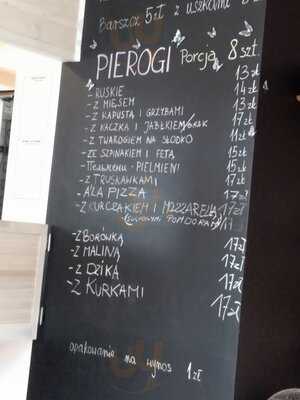 Barszcz 5zł z uszkami 8
PIEROGI Porcja 8 szt.
- RUSKIE 13 zł
- Z MIĘSEM 14 zł
- Z KAPUSTĄ I GRZYBAMI 13 zł
- Z KACZKĄ I JABŁKIEM/ 17 zł
- Z TWAROGIEM NA SŁODKO 11 zł
- ZE SZPINAKIEM I FETĄ 15 zł
- Пельмени - PIELMIENI 15 zł
- Z TRUSKAWKAMI 17 zł
- A'LA PIZZA 17 zł
- Z KURCZAKIEM I MOZZARELLĄ 17 zł
SUSZONYMI POMIDORAMI
- Z BORÓWKĄ 17 zł
- Z MALINĄ 17 zł
- Z DZIKA 17 zł
- Z KURKAMI 17 zł
opakowanie na wynos 1 zł